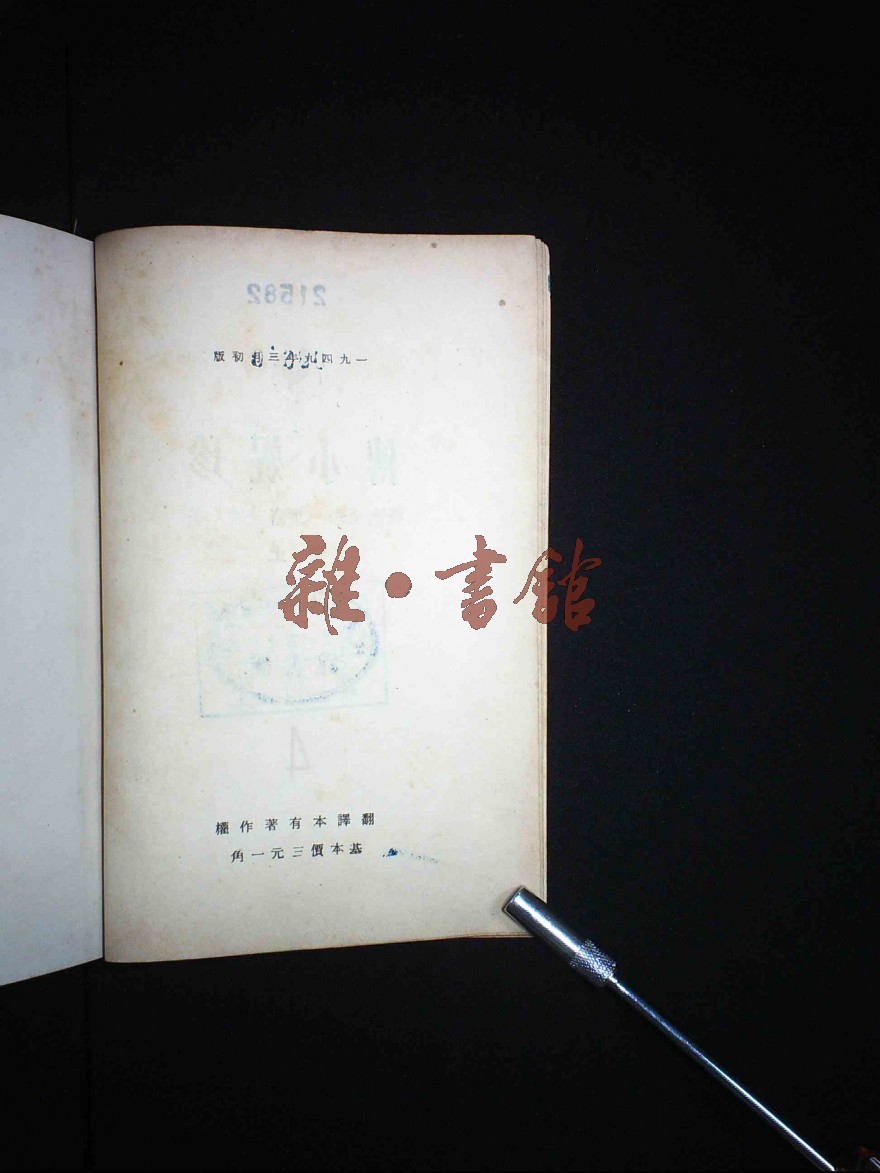 21582
一九四九年三月初版
珍妮小傳
雜·書館
4
翻譯本有著作權
基本價三元一角